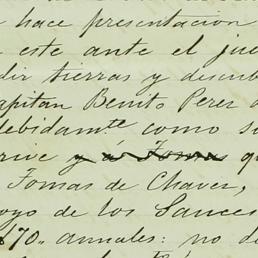 hace presentacion
este ante el jue
dir tierras y descub
apitan Benito Perez d
debidamte como s
rive y á Tomas qu
Tomas de Chaves,
oyo de los Sauces
70. annales: no d